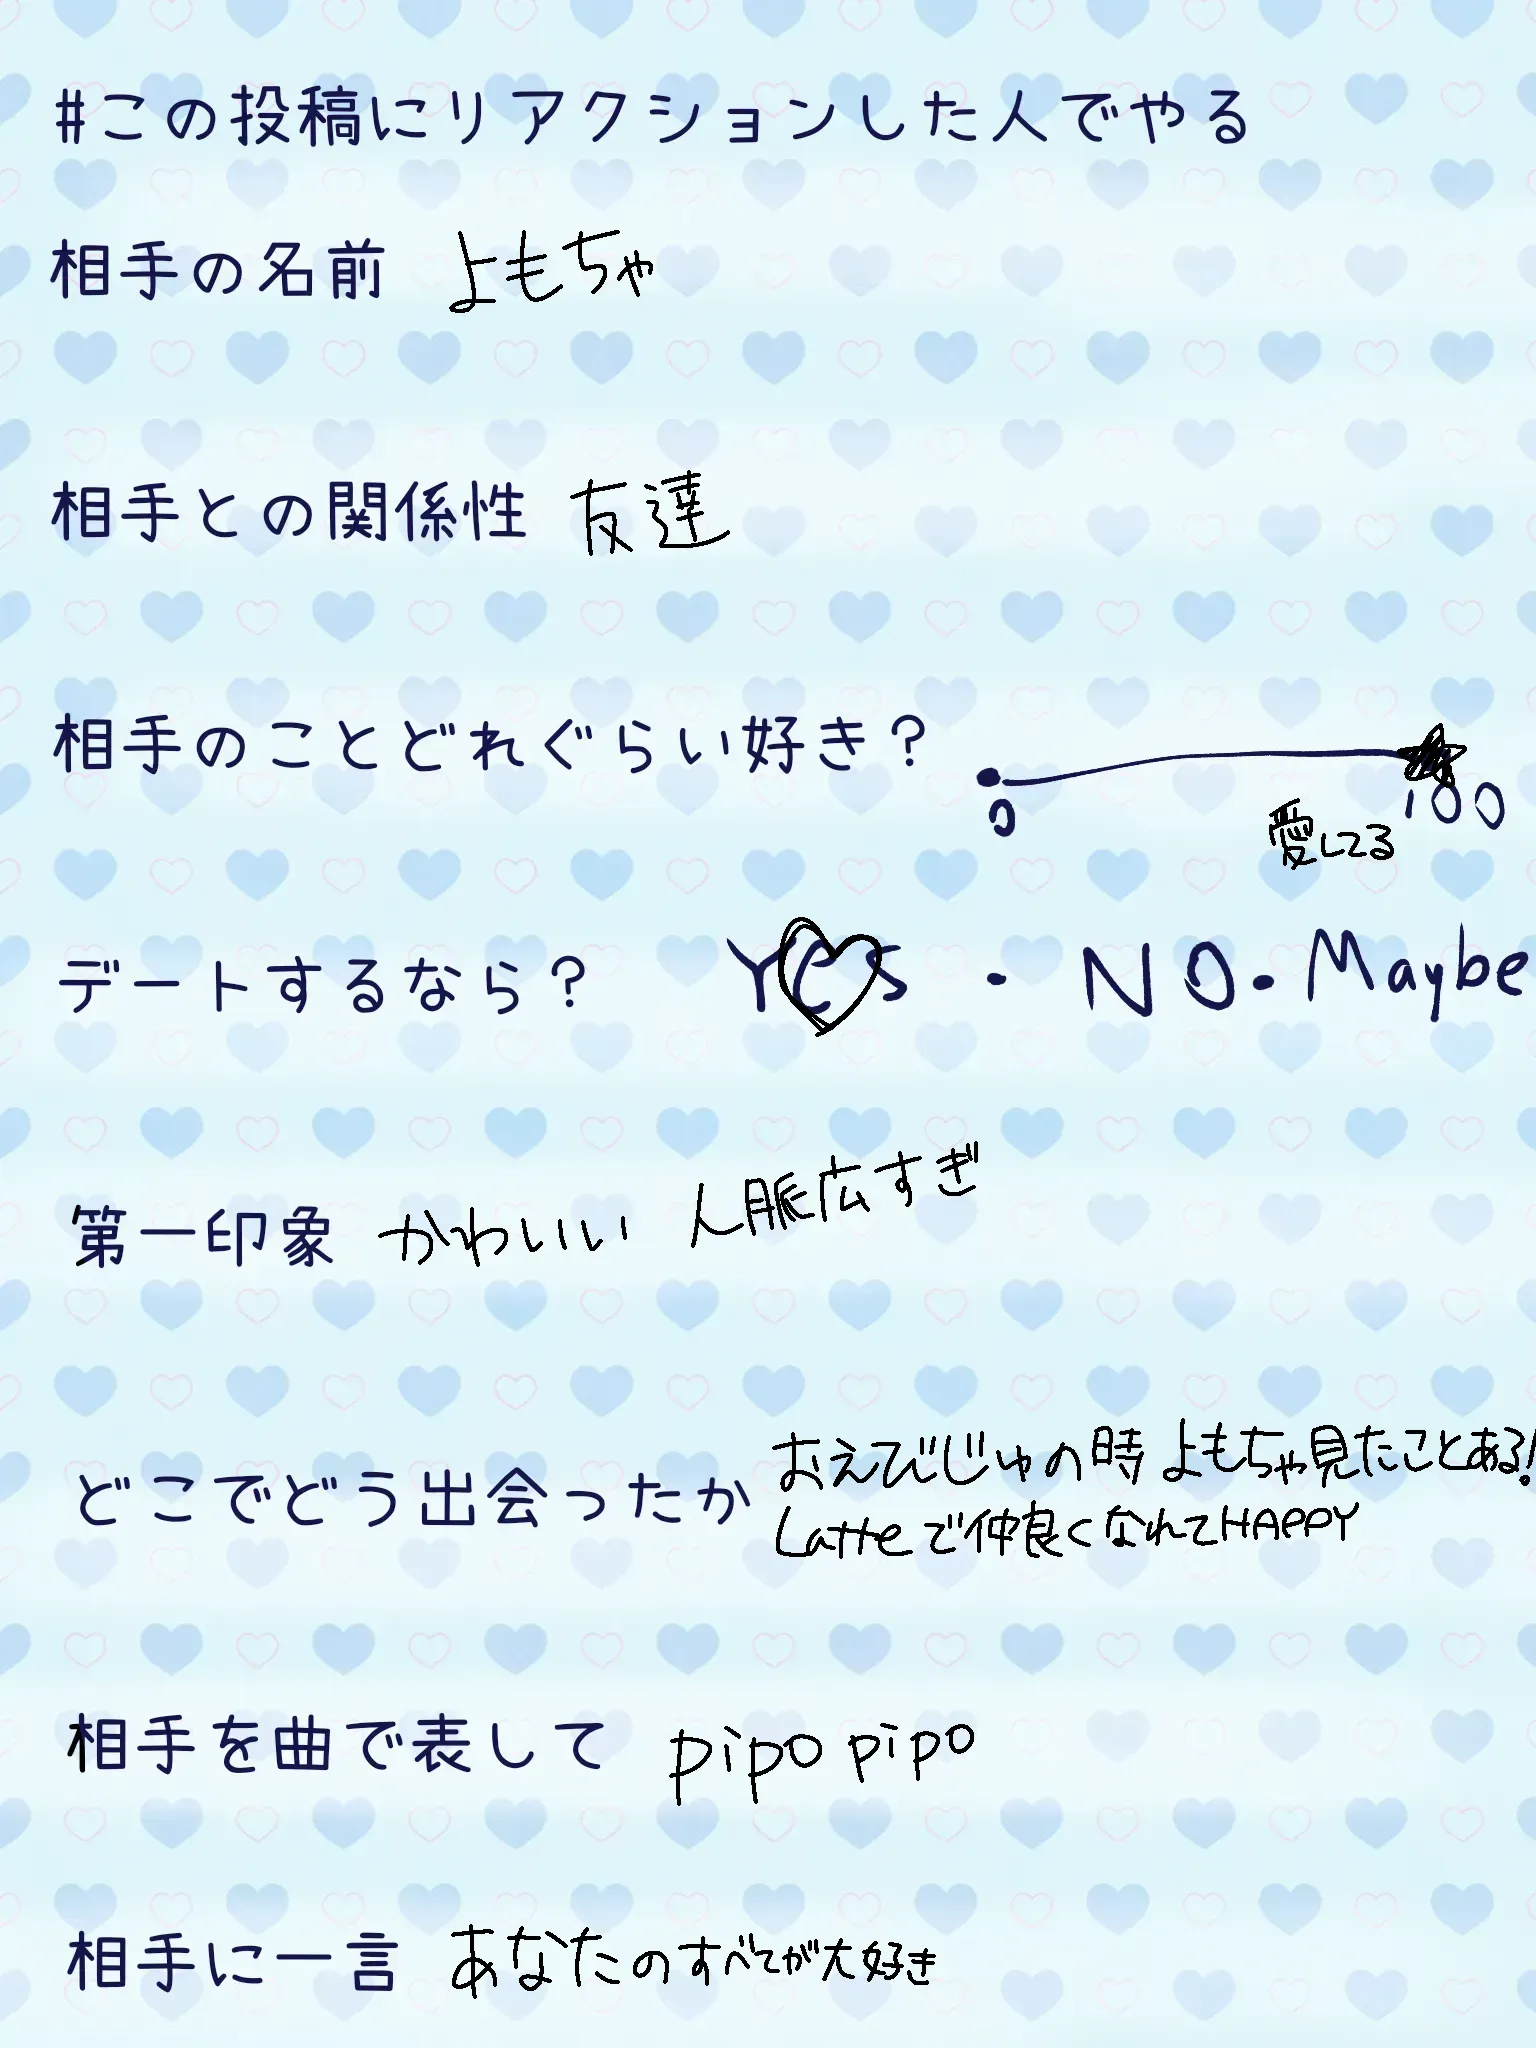 #この投稿にリアクションした人でやる
相手の名前 よもちゃ
相手との関係性 友達
相手のことどれぐらい好き?
0 100
愛してる
デートするなら? Yes ・ NO・Maybe
第一印象 かわいい 人脈広すぎ
どこでどう出会ったか おえびじゅの時 よもちゃ見たことある!
Latteで仲良くなれてHAPPY
相手を曲で表して pipo pipo
相手に一言 あなたのすべてが大好き